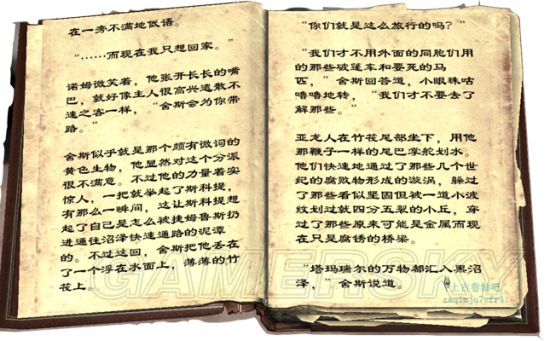 在一旁不满地低语。
“……而现在我只想回家。”
诺姆微笑着，他张开长长的嘴
巴，就好像主人很高兴遣散不
速之客一样，“舍斯会为你带
路。”
舍斯似乎就是那个颇有微词的
黄色生物，他显然对这个分派
很不满意。不过他的力量着实
惊人，一把就举起了斯科提，
有那么一瞬间，这让斯科提想
起了自己是怎么被捷姆鲁斯扔
进通往沼泽快速通路的泥潭
的。不过这回，舍斯把他丢在
了一个浮在水面上，薄薄的竹
花上。
“你们就是这么旅行的吗？”
“我们才不用外面的同胞们用
的那些破篷车和要死的马
匹，”舍斯回答道，小眼珠咕
噜噜地转，“我们才不要去了
解那些。”
亚龙人在竹花尾部坐下，用他
那鞭子一样的尾巴掌舵划水。
他们快速地通过了那些几个世
纪的腐败物形成的漩涡，躲过
了那些看似坚固但被一道小波
纹划过就四分五裂的小丘，穿
过了那些原来可能是金属而现
在只是腐锈的桥梁。
“塔玛瑞尔的万物都汇入黑沼
泽，”舍斯说道。
GAMERSKY
上古卷轴吧
zaqimju7yfr4